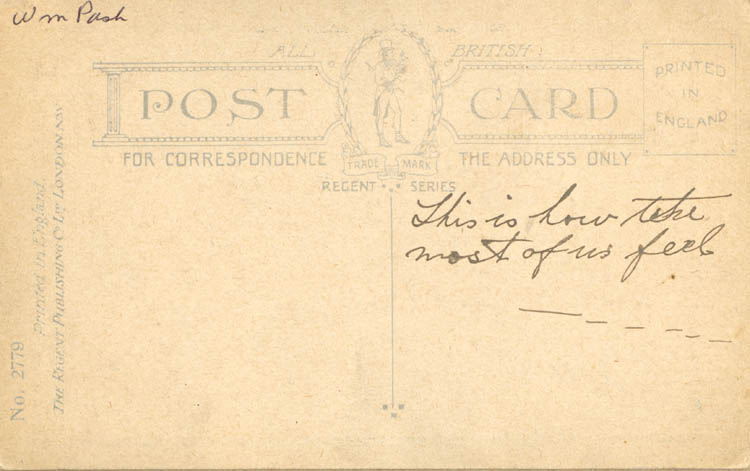 Wm Pash
ALL BRITISH
POST CARD
PRINTED
IN
ENGLAND
FOR CORRESPONDENCE THE ADDRESS ONLY
TRADE MARK
REGENT SERIES
This is how the
most of us feel
No. 2779
Printed in England.
THE REGENT PUBLISHING Co LTD LONDON. NW